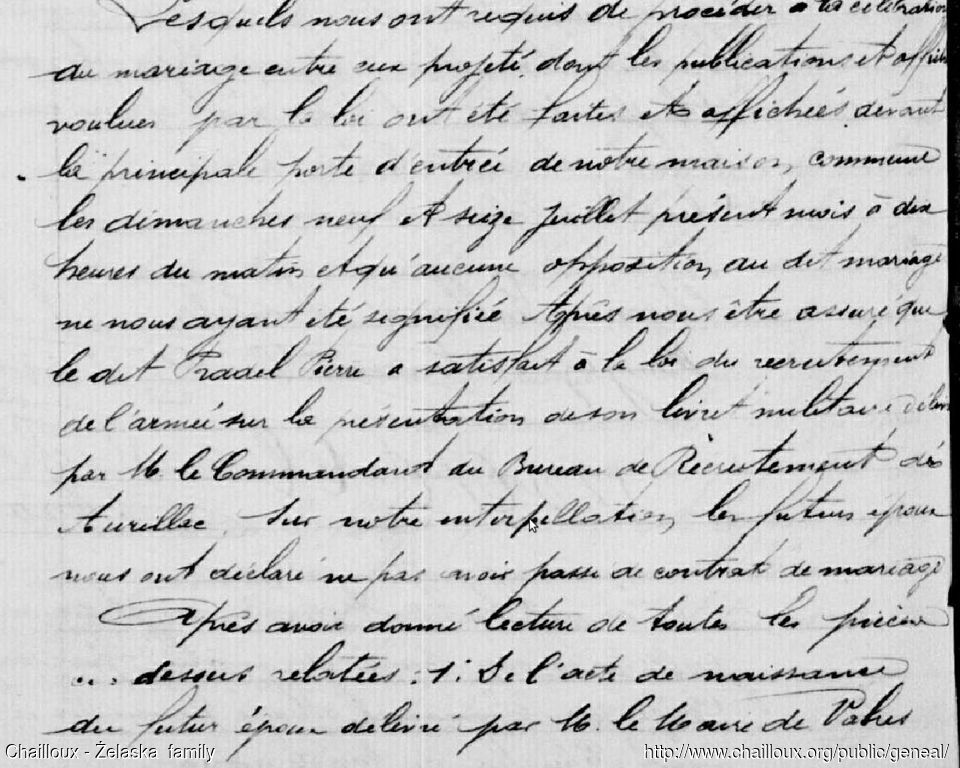 Lesquels nous ont requis de procéder à la célébration
du mariage entre eux projeté, dont les publications et affiches
voulues par la loi ont été faites et affichées devant
la principale porte d'entrée de notre maison commune
les dimanches neuf et seize Juillet présent mois à dix
heures du matin et qu'aucune opposition au dit mariage
ne nous ayant été signifiée Après nous être assuré que
le dit Pradel Pierre a satisfait à la loi du recrutement
de l'armée sur la présentation de son livret militaire délivré
par M. le Commandant du Bureau de Récrutement
Aurillac. Sur notre interpellation, les futurs époux
nous ont déclaré ne pas avoir passé de contrat de mariage
Après avoir donné lecture de toutes les pièces
dessus relatées: 1° De l'acte de naissance
du futur époux délivré par M. le Maire de
Chailloux - Żelaska family http://www.chailloux.org/public/geneal/